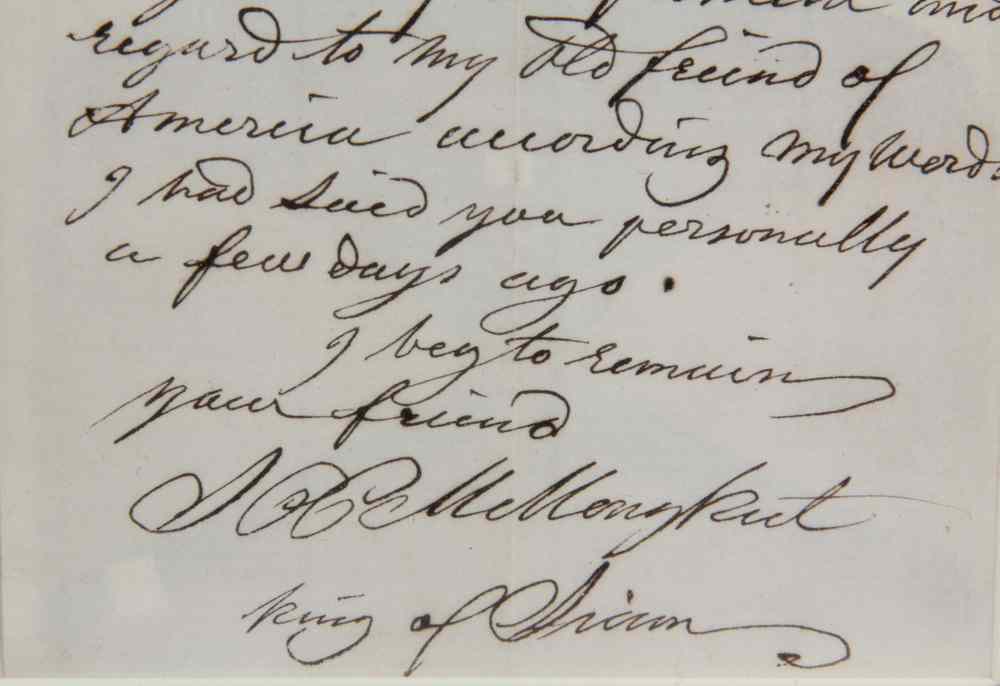 regard to my Old friend of
America according my words
I had said you personally
a few days ago.
I beg to remain
your friend
S P P M Mongkut
King of Siam